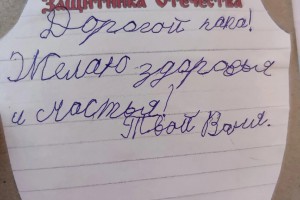 Защитника Отечества
Дорогой папа!
Желаю здоровья
и счастья!
Твой Ваня.